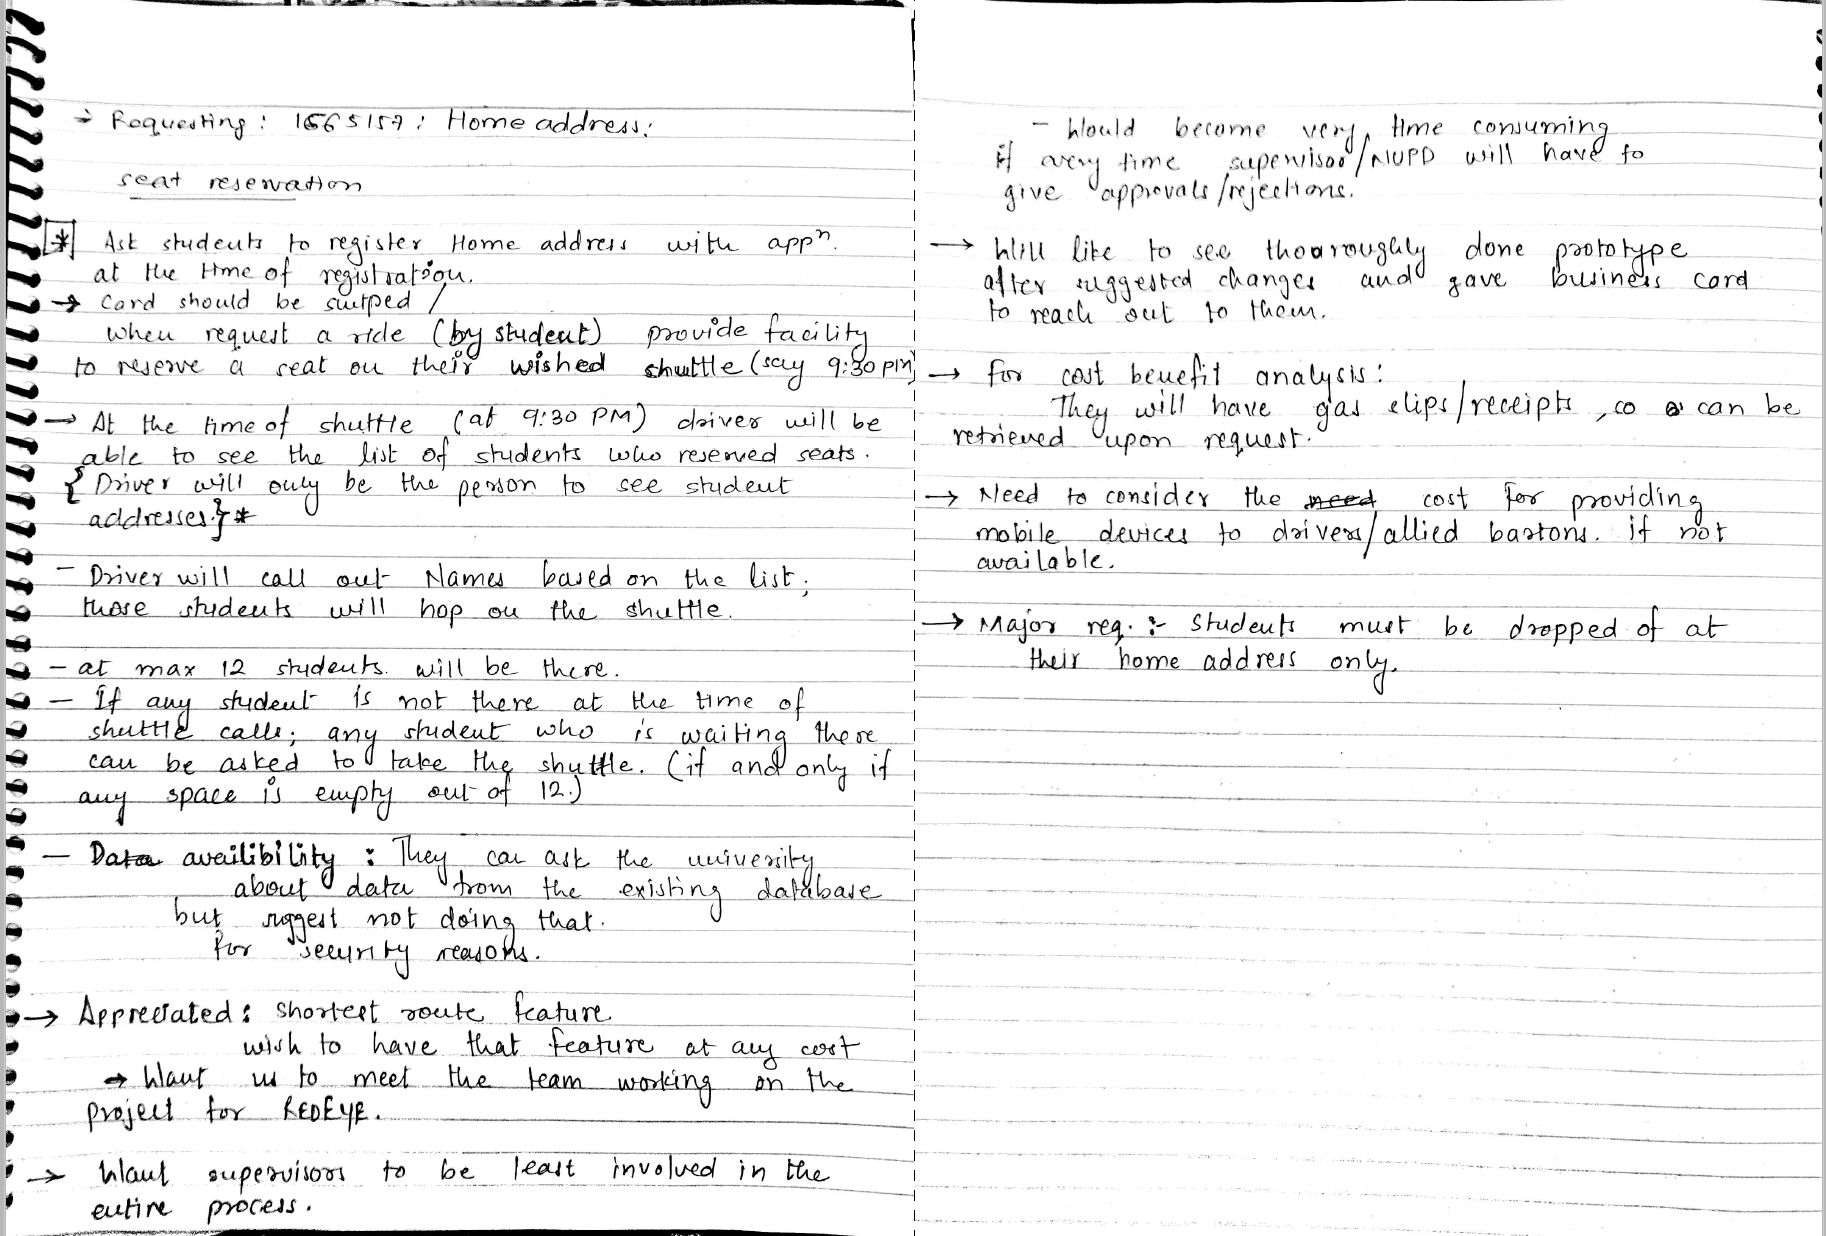 → Requesting : 1665157 : Home address :
seat reservation
* Ask students to register Home address with appⁿ.
at the time of registration.
→ Card should be swiped /
when request a ride (by student) provide facility
to reserve a seat on their wished shuttle (say 9:30 PM)
→ At the time of shuttle (at 9:30 PM) driver will be
able to see the list of students who reserved seats.
{ Driver will only be the person to see student
addresses.} *
- Driver will call out Names based on the list;
those students will hop on the shuttle.
- at max 12 students. will be there.
- If any student is not there at the time of
shuttle calls; any student who is waiting there
can be asked to take the shuttle. (if and only if
any space is empty out of 12.)
- Data availibility : They can ask the university
about data from the existing database
but suggest not doing that.
for security reasons.
→ Appreciated : shortest route feature
wish to have that feature at any cost
→ Want us to meet the team working on the
project for REDEYE.
→ Want supervisors to be least involved in the
entire process.
- Would become very time consuming
if every time supervisor/NUPD will have to
give approvals/rejections.
→ Will like to see thoaroughly done prototype
after suggested changes and gave business card
to reach out to them.
→ for cost benefit analysis :
They will have gas slips/receipts, co can be
retrieved upon request.
→ Need to consider the need cost for providing
mobile devices to drivers/allied bartons. if not
available.
→ Major req. :- Students must be dropped of at
their home address only.